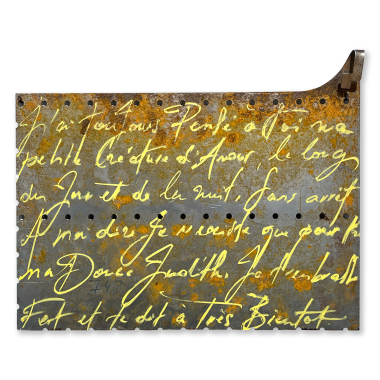 J'ai toujours Pensé à Toi ma
petite Créature d'Amour, le long
du Jour et de la nuit, sans arrêt
Je que pour t
ma Douce Judith, Je t'embrasse
Fort et te dit à Très Bientôt.